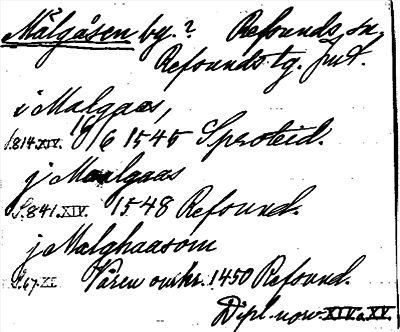 Målgåsen by. ? Refsunds sn,
Refsunds tg. Jmt.
i Malgaas,
S. 814. XIV. 16/6 1545 Sproteid.
j Malgaas
S. 841. XIV. 1548 Refsund.
j Malghaasom
S. 67. XI. Våren omkr. 1450 Refsund.
Dipl. norv. XIV o. XV.